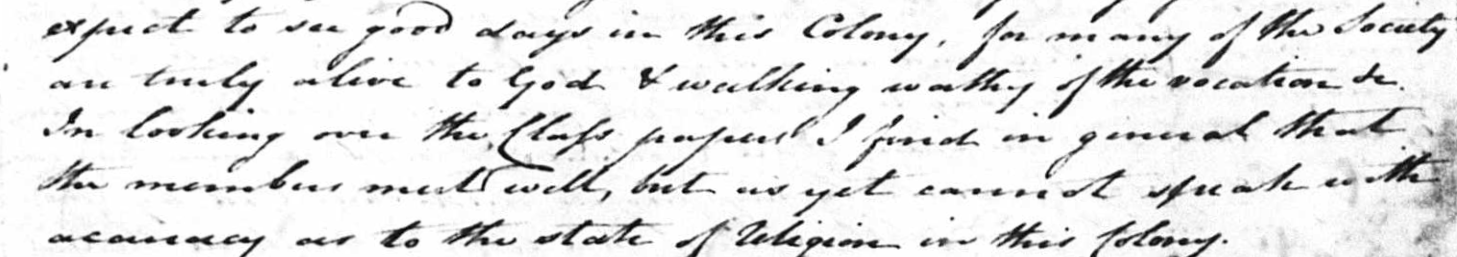 expect to see good days in this Colony, for many of the Society
are truly alive to God & walking worthy of the vocation &c.
In looking over the Class papers I find in general that
the members meet well, but as yet cannot speak with
accuracy as to the state of Religion in this Colony.